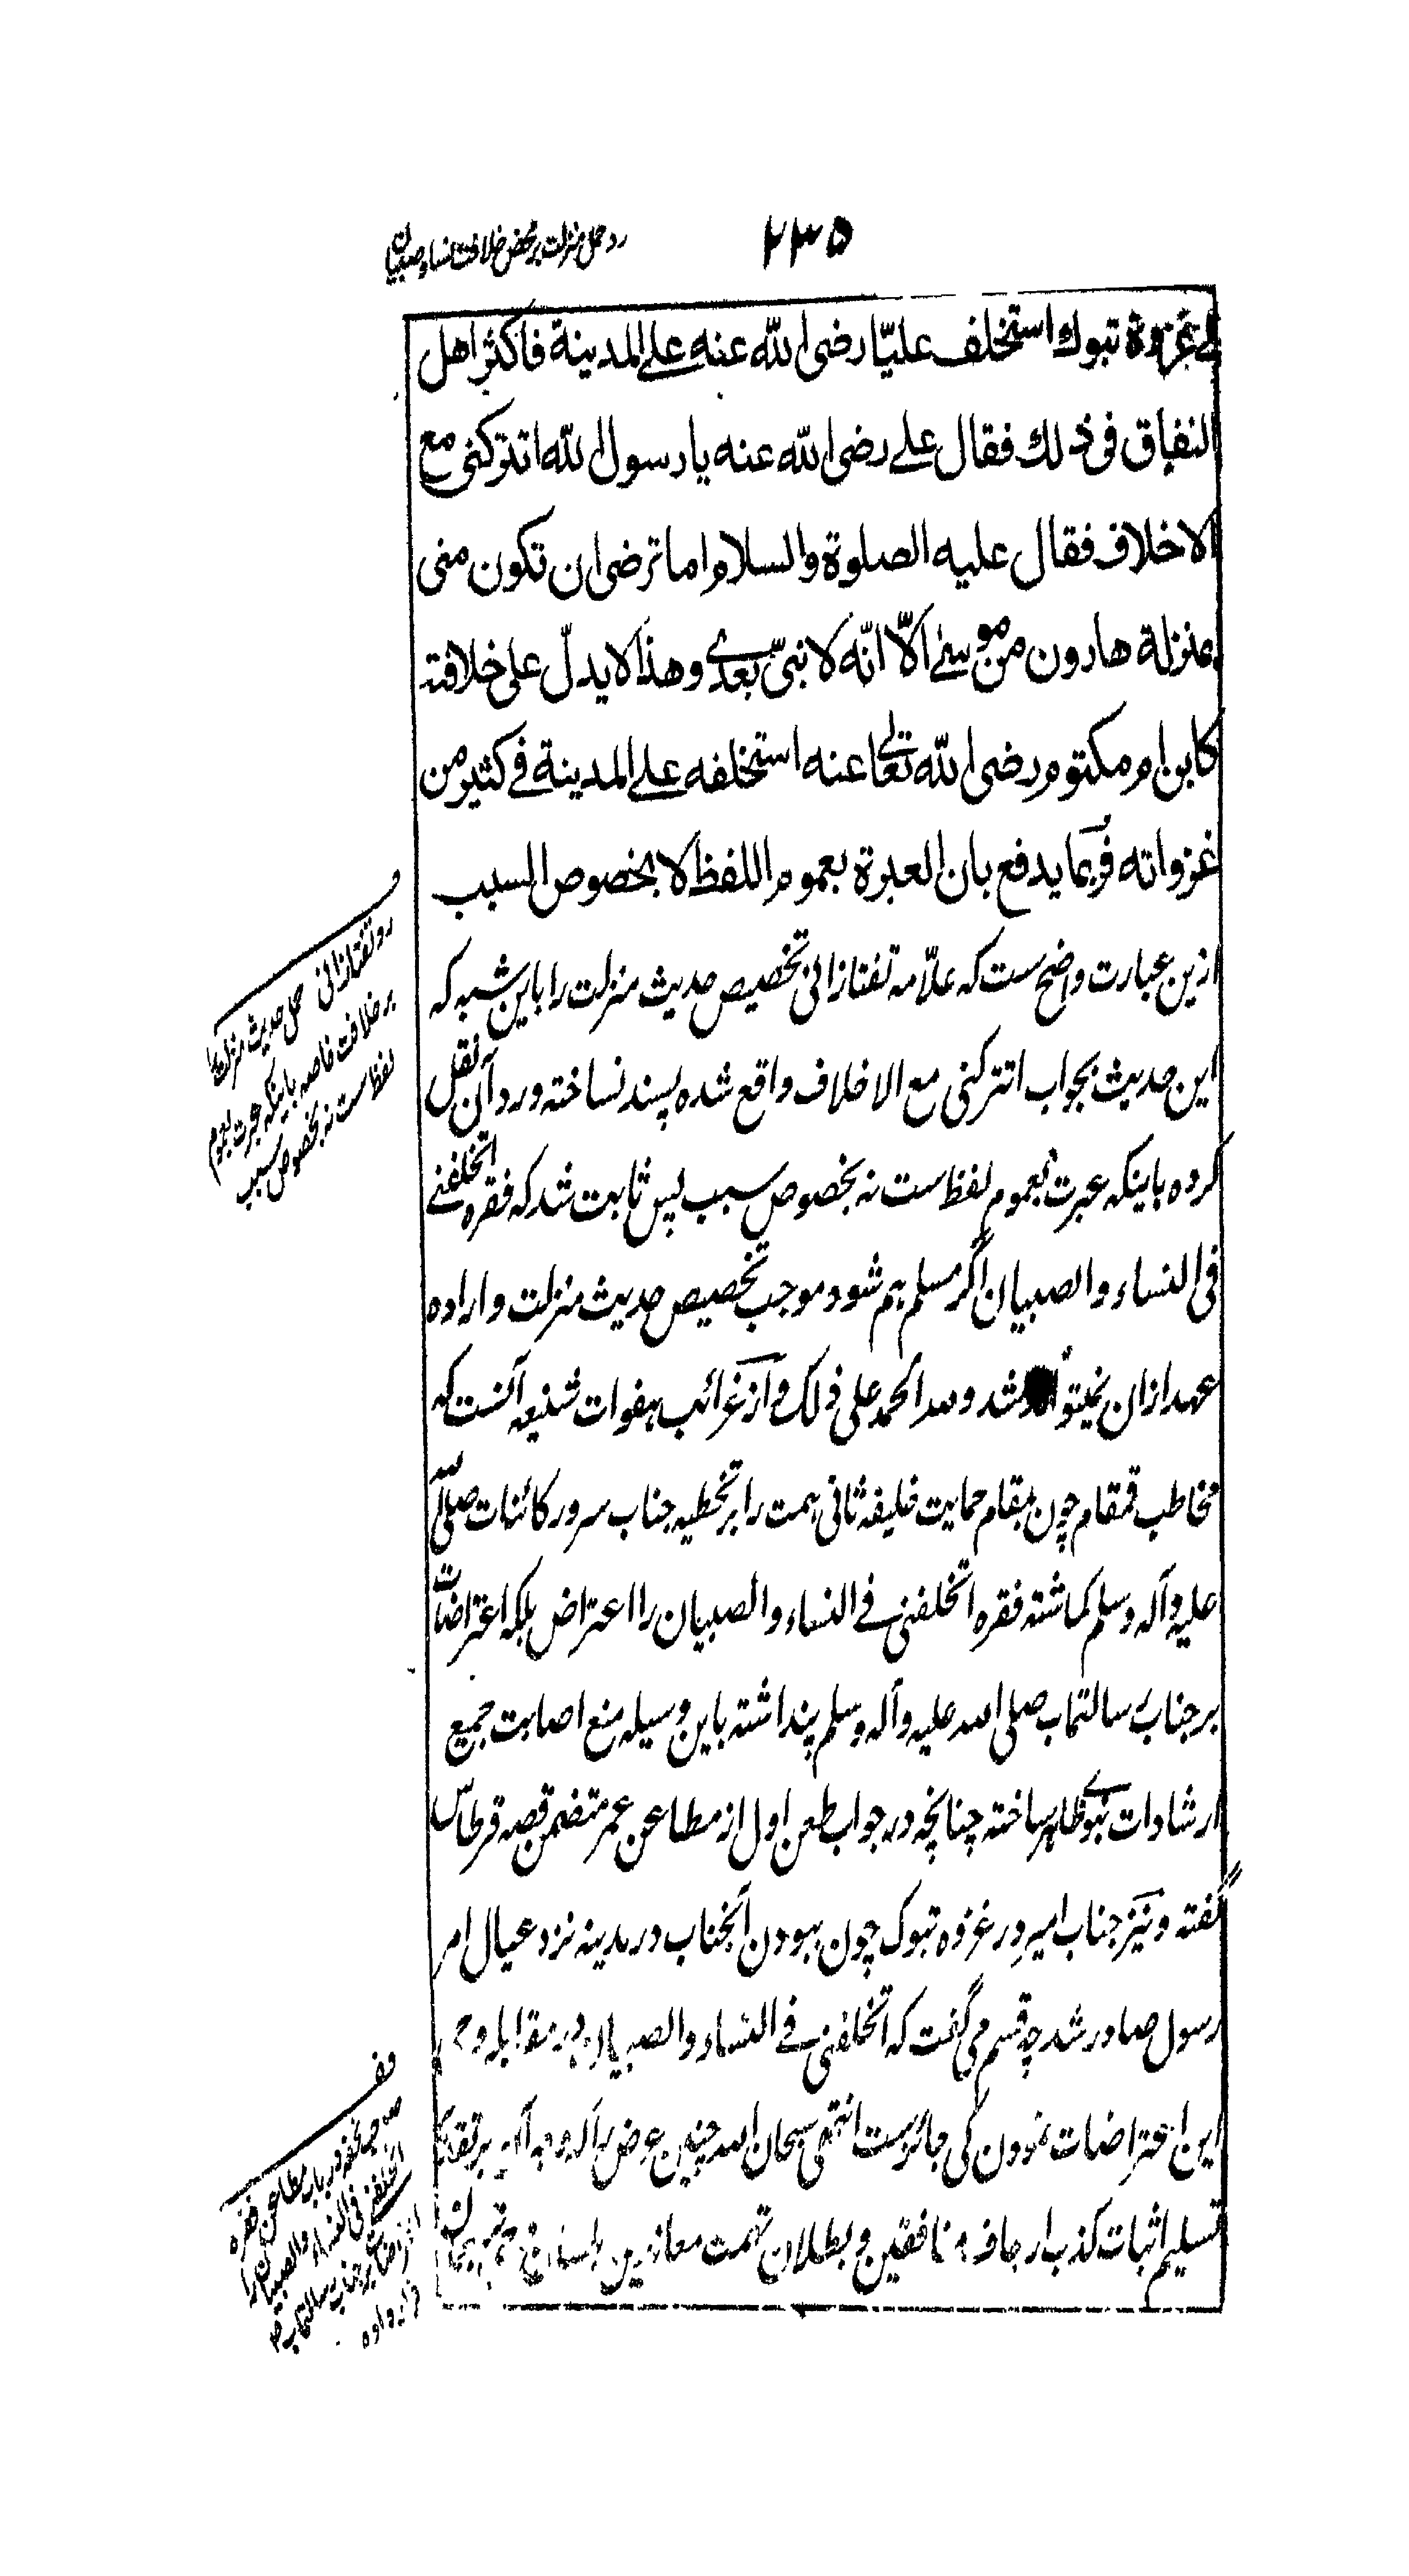 ۲۳۵
رد حمل منزلت بر محض خلافت نساء و صبیان
الے غزوة تبوك استخلف عليّا رضى الله عنه علے المدينة فاكثر اهل
النفاق فى ذلك فقال علے رضى الله عنه يا رسول الله اتتركنى مع
الاخلاف فقال عليه الصلوة والسلام اما ترضى ان تكون منى
بمنزلة هارون من موسىٰ الّا انّه لا نبىّ بعدے وهذا لا يدلّ على خلافته
كابن ام مكتوم رضى الله تعالے عنه استخلفه علے المدينة فے كثير من
غزواته فربما يدفع بان العبرة بعموم اللفظ لا بخصوص السبب
ازین عبارت واضح ست که علّامه تفتازانی تخصیص حدیث منزلت را باین شبهه که
این حدیث بجواب اتترکنی مع الاخلاف واقع شده پسند نساخته و رد آن نقل
کرده باینکه عبرت بعموم لفظ ست نه بخصوص سبب پس ثابت شد که فقره اتخلفنے
فی النساء و الصبیان اگر مسلم هم شود موجب تخصیص حدیث منزلت و اراده
عهد ازان نمیتواند شد و لله الحمد علی ذلک و از غرائب هفوات شنیعه آنست که
مخاطب قمقام چون بمقام حمایت خلیفه ثانی همت را بر تخطیه جناب سرور کائنات صلی الله
علیه وآله وسلم گماشته فقره اتخلفنی فے النساء والصبیان را اعتراض بلکه اعتراضات
بر جناب رسالتمآب صلی الله علیه وآله وسلم پنداشته باین وسیله منع اصابت جمیع
ارشادات نبوے ظاهر ساخته چنانچه در جواب طعن اول از مطاعن عمر متضمن قصه قرطاس
گفته و نیز جناب امیر در غزوه تبوک چون ببودن آنجناب در مدینه نزد عیال امر
رسول صادر شد چه قسم می گفت که اتخلفنی فے النساء والصبیان در مقابله وحی
این اعتراضات نمودن کی جائز ست انتهی سبحان الله چنین عرض را که بر تقدیر
تسلیم اثبات کذب ارجاف منافقین و بطلان تهمت معاندین
رد تفتازانی حمل حدیث منزلت را
بر خلافت خاصه باینکه عبرت بعموم
لفظ ست نه بخصوص سبب
صاحب تحفه در باب مطاعن فقره
اتخلفنے فی النساء والصبیان را
اعتراضات بر جناب رسالتمآب ص
قرار داده